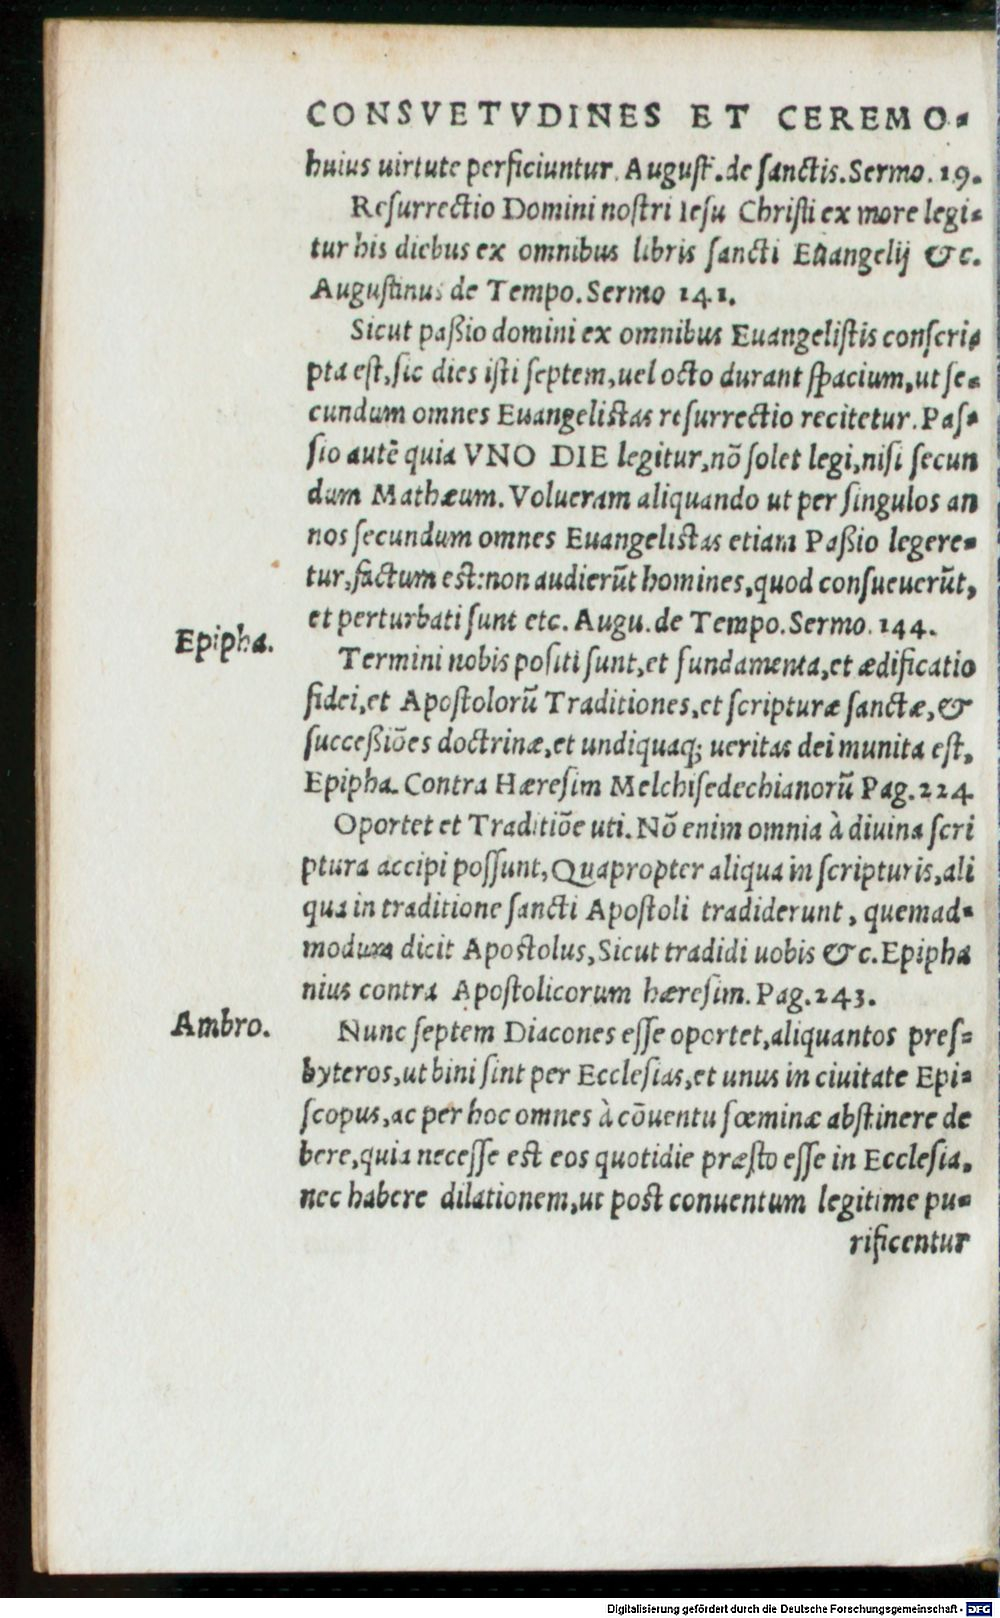 CONSVETVDINES ET CEREMO-
huius uirtute perficiuntur. August. de sanctis. Sermo. 19.
Resurrectio Domini nostri Iesu Christi ex more legi-
tur his diebus ex omnibus libris sancti Euangelij &c.
Augustinus de Tempo. Sermo 141.
Sicut paßio domini ex omnibus Euangelistis conscri-
pta est, sic dies isti septem, uel octo durant spacium, ut se-
cundum omnes Euangelistas resurrectio recitetur. Pas-
sio autē quia VNO DIE legitur, nō solet legi, nisi secun
dum Mathæum. Volueram aliquando ut per singulos an
nos secundum omnes Euangelistas etiam Paßio legere-
tur, factum est: non audierūt homines, quod consueuerūt,
et perturbati sunt etc. Augu. de Tempo. Sermo. 144.
Epipha.
Termini nobis positi sunt, et fundamenta, et ædificatio
fidei, et Apostolorū Traditiones, et scripturæ sanctæ, &
succeßiōes doctrinæ, et undiquaq; ueritas dei munita est,
Epipha. Contra Hæresim Melchisedechianorū Pag. 224
Oportet et Traditiōe uti. Nō enim omnia à diuina scri
ptura accipi possunt, Quapropter aliqua in scripturis, ali
qua in traditione sancti Apostoli tradiderunt, quemad-
modum dicit Apostolus, Sicut tradidi uobis &c. Epipha
nius contra Apostolicorum hæresim. Pag. 243.
Ambro.
Nunc septem Diacones esse oportet, aliquantos pres-
byteros, ut bini sint per Ecclesias, et unus in ciuitate Epi-
scopus, ac per hoc omnes à cōuentu fœminæ abstinere de
bere, quia necesse est eos quotidie præsto esse in Ecclesia,
nec habere dilationem, ut post conuentum legitime pu-
rificentur
Digitalisierung gefördert durch die Deutsche Forschungsgemeinschaft - DFG